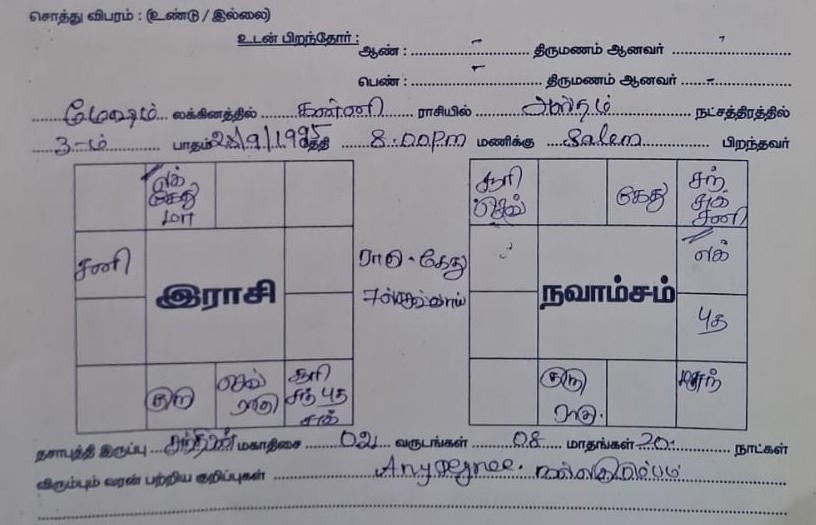 சொத்து விபரம் : (உண்டு / இல்லை)
உடன் பிறந்தோர் : ஆண் : - திருமணம் ஆனவர்
பெண் : - திருமணம் ஆனவர் -
மேஷம் லக்கினத்தில் கன்னி ராசியில் அஸ்தம் நட்சத்திரத்தில்
3-ம் பாதம் 25/9/1995 தேதி 8.00pm மணிக்கு Salem பிறந்தவர்
லக்
கேது
மா
சனி
இராசி
குரு
செவ்
ராகு
சூரி
சந் புத
சுக்
ராகு - கேது
சூரி
செவ்
கேது
சந்
சுக்
சனி
லக்
நவாம்சம்
புத
குரு
ராகு.
தசாபுத்தி இருப்பு சந்திரன் மகாதிசை 02 வருடங்கள் 08 மாதங்கள் 20 நாட்கள்
விரும்பும் வரன் பற்றிய குறிப்புகள் Any Degree. நல்ல குடும்பம்